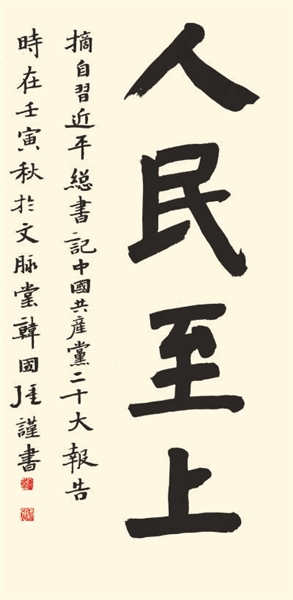 人民至上
摘自習近平總書記中國共產黨二十大報告
時在壬寅秋於文脉堂韓國謹書